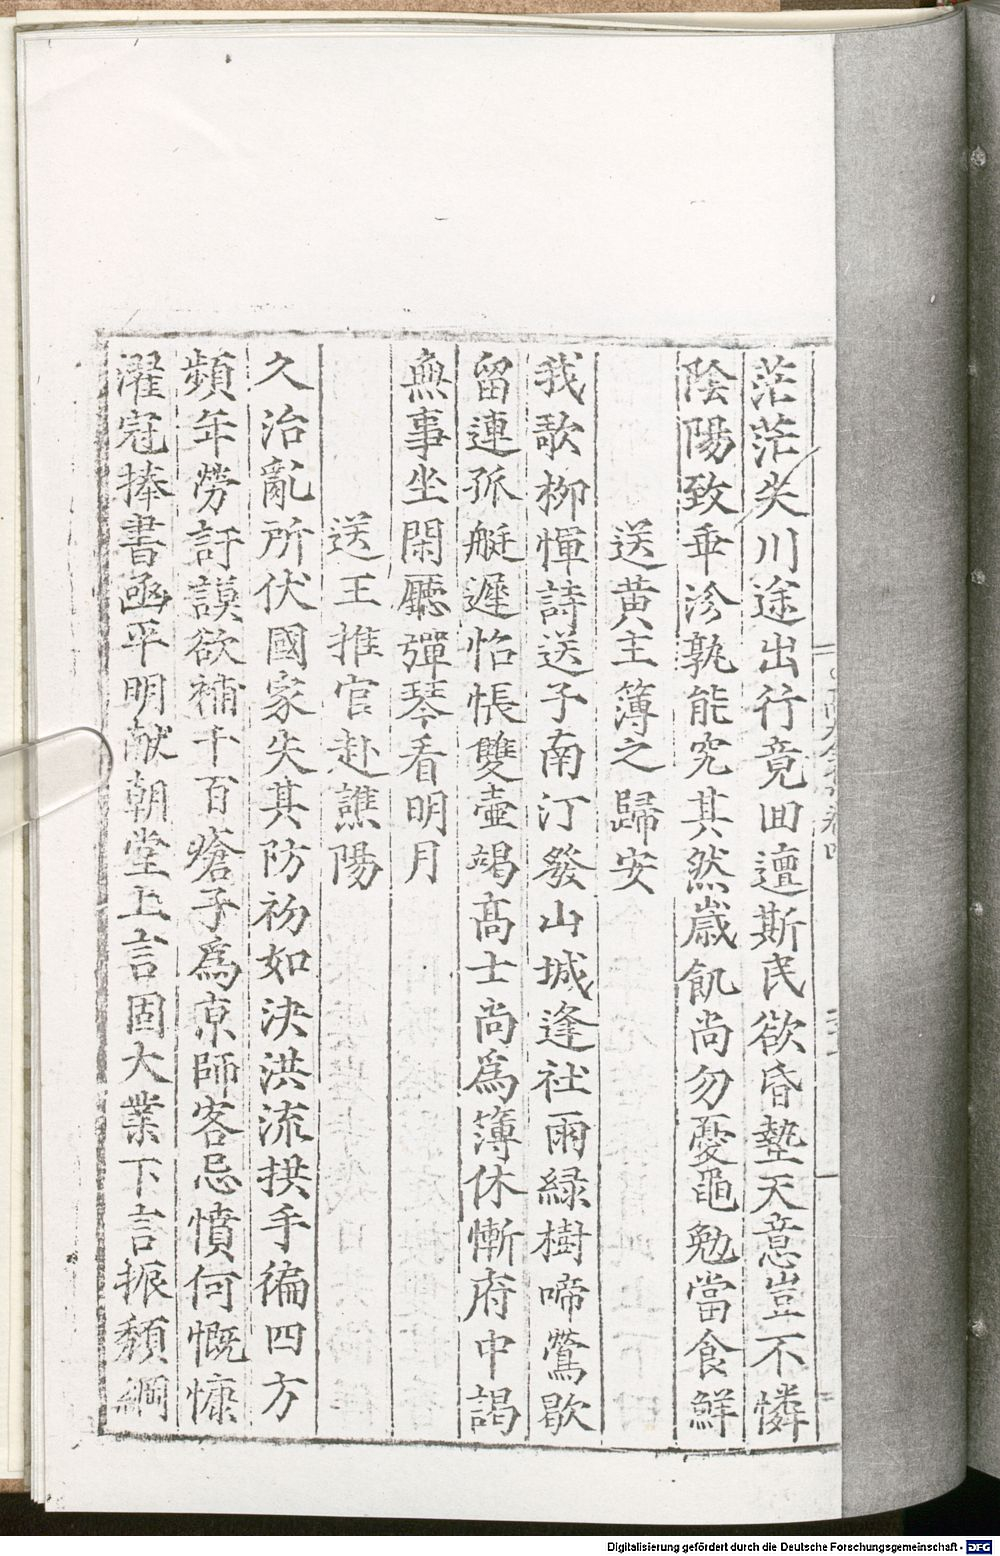 茫茫失川途出行竟田邅斯民欲昏墊天意豈不憐
陰陽致乖沴孰能究其然歲飢尚勿憂黽勉當食鮮
送黄主簿之歸安
我歌柳惲詩送子南汀發山城逢社雨緑樹啼鶯歇
留連孤艇遲怊悵雙壷竭高士尚爲簿休慚府中謁
無事坐閑廳彈琴看明月
送王推官赴譙陽
久治亂所伏國家失其防初如決洪流拱手徧四方
頻年勞訏謨欲補千百瘡子爲京師客忌憤何慨慷
濯冠捧書函平明献朝堂上言固大業下言振頽綱
Digitalisierung gefördert durch die Deutsche Forschungsgemeinschaft - DFG